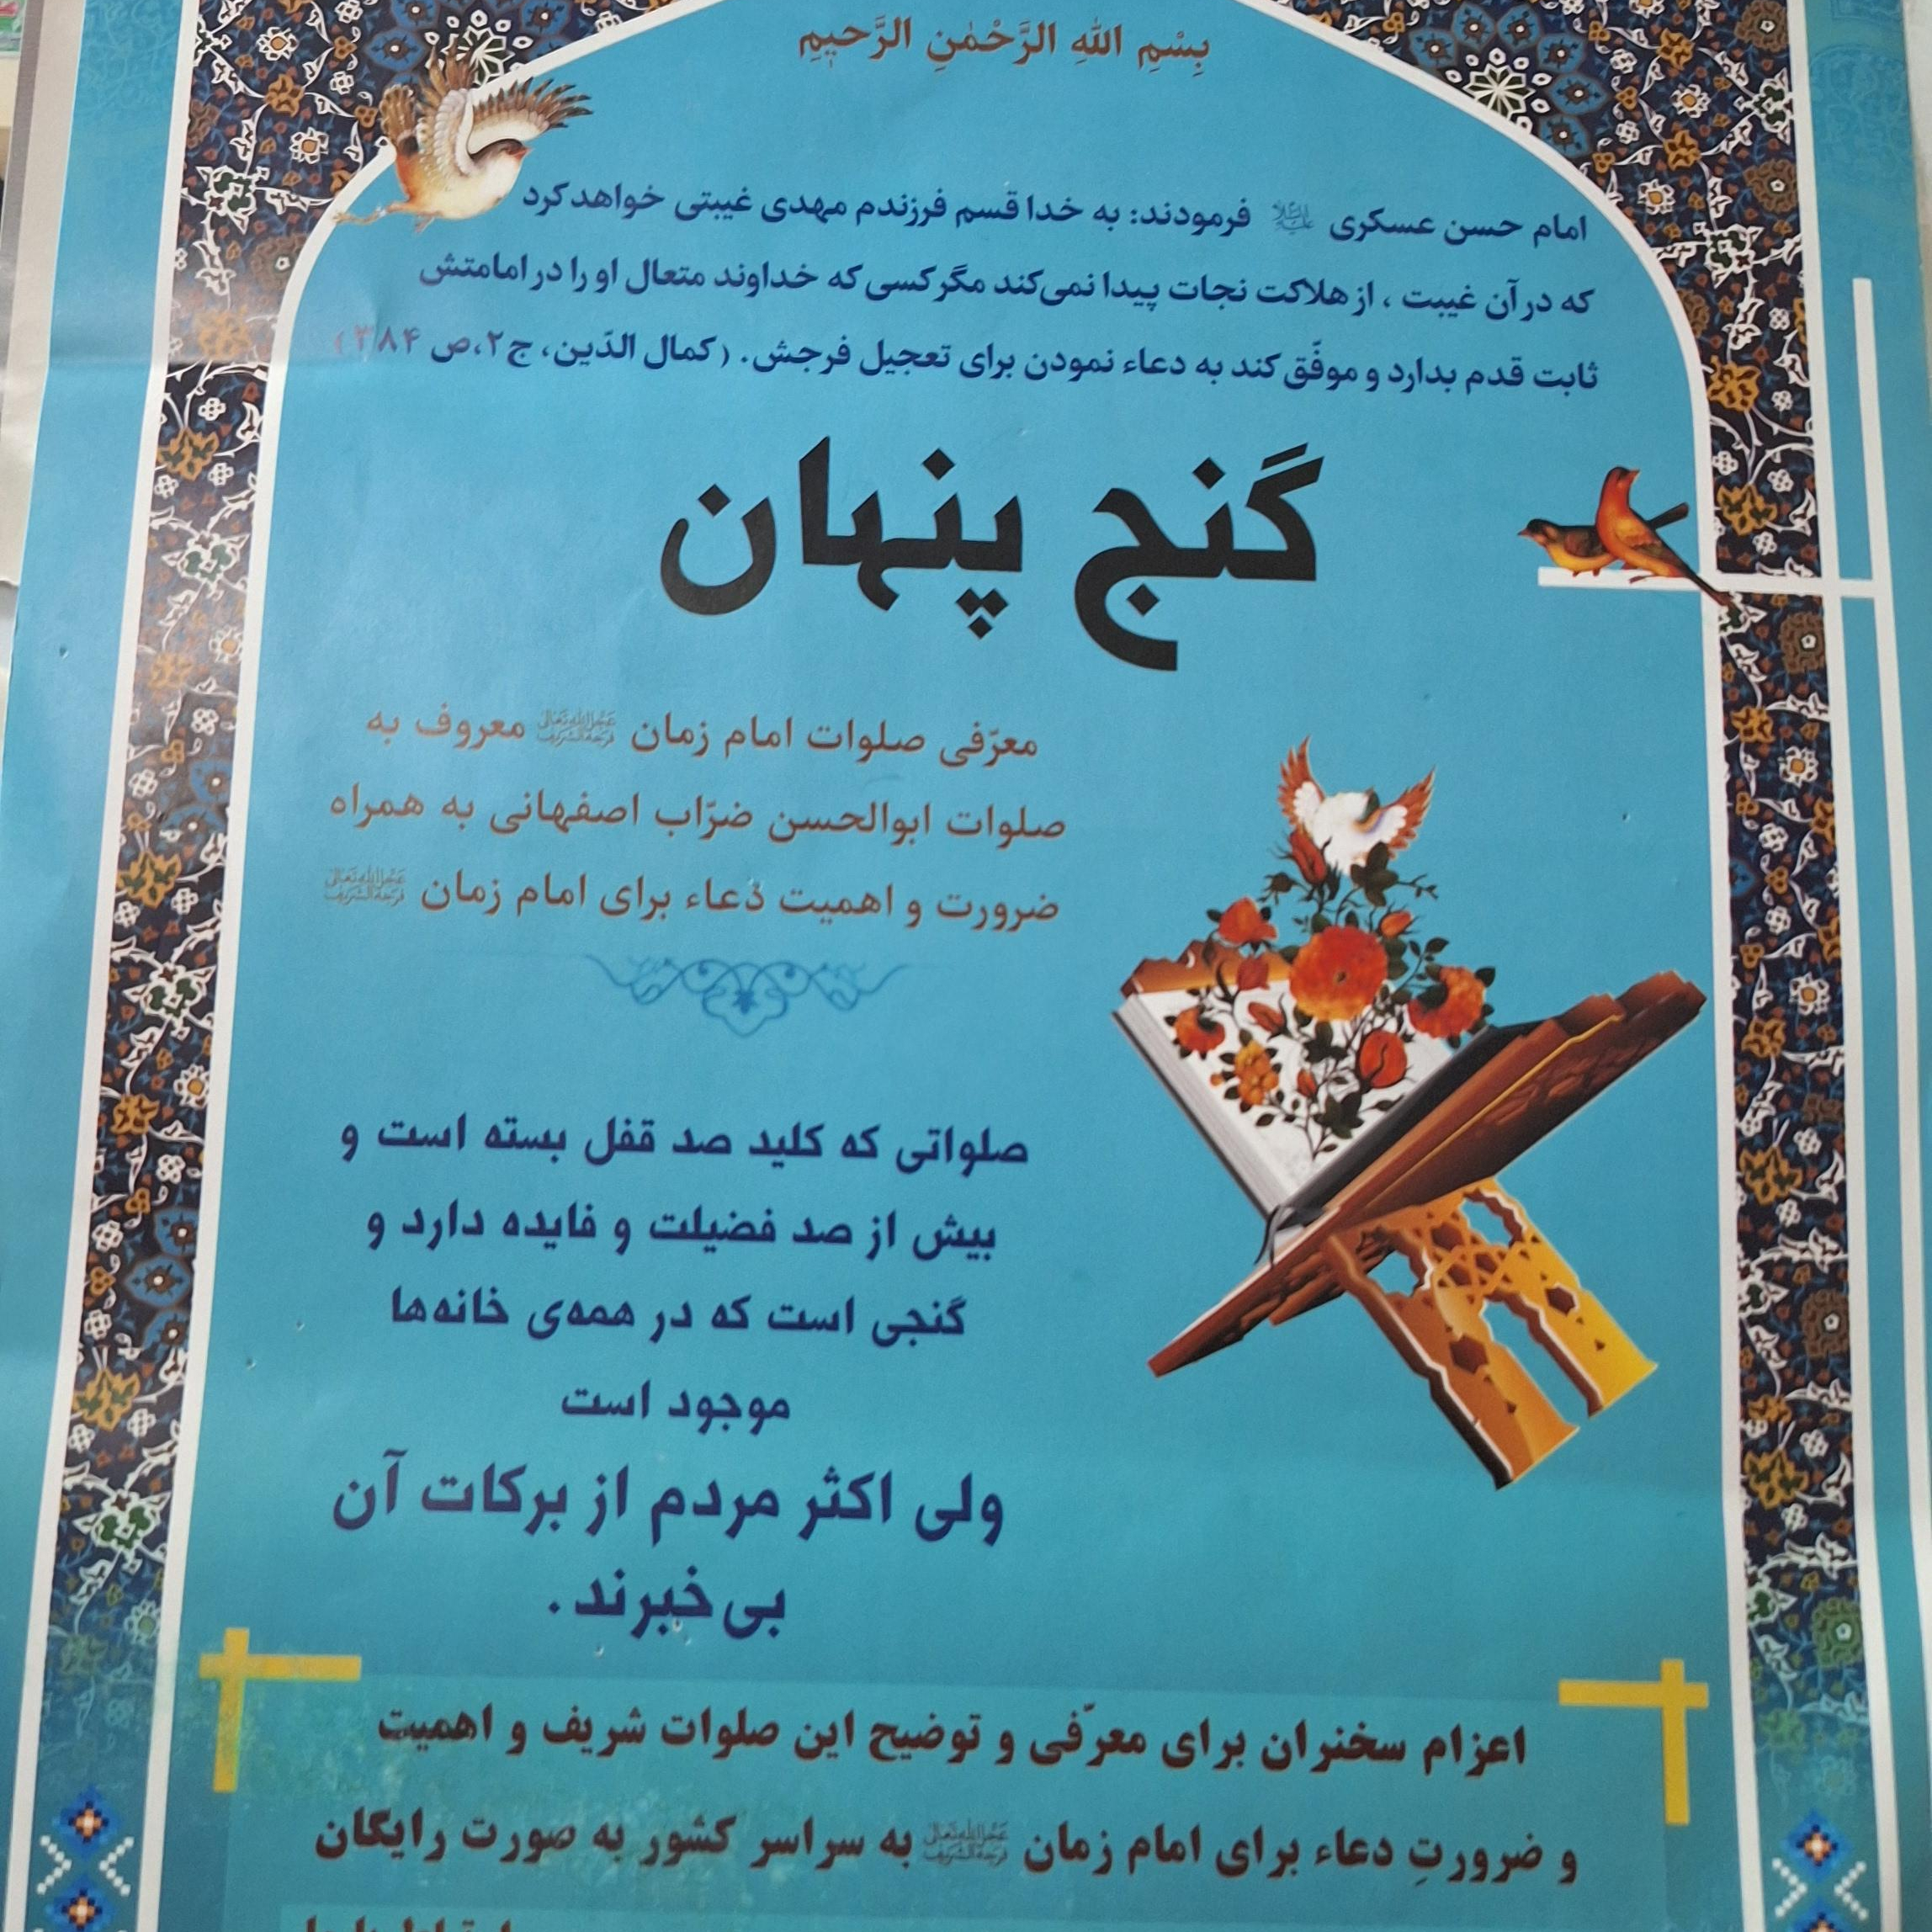 بِسْمِ اللهِ الرَّحْمٰنِ الرَّحیمِ
امام حسن عسکری علیه‌السلام فرمودند: به خدا قسم فرزندم مهدی غیبتی خواهد کرد
که در آن غیبت ، از هلاکت نجات پیدا نمی‌کند مگر کسی که خداوند متعال او را در امامتش
ثابت قدم بدارد و موفّق کند به دعاء نمودن برای تعجیل فرجش. (کمال الدّین، ج۲،ص ۳۸۴)
گَنج پنهان
معرّفی صلوات امام زمان عَجَّلَ اللهُ تَعَالیٰ فَرَجَهُ الشَّریف معروف به
صلوات ابوالحسن ضرّاب اصفهانی به همراه
ضرورت و اهمیت دُعاء برای امام زمان عَجَّلَ اللهُ تَعَالیٰ فَرَجَهُ الشَّریف
صلواتی که کلید صد قفل بسته است و
بیش از صد فضیلت و فایده دارد و
گنجی است که در همه‌ی خانه‌ها
موجود است
ولی اکثر مردم از برکات آن
بی‌خبرند.
اعزام سخنران برای معرّفی و توضیح این صلوات شریف و اهمیت
و ضرورتِ دعاء برای امام زمان عَجَّلَ اللهُ تَعَالیٰ فَرَجَهُ الشَّریف به سراسر کشور به صورت رایگان